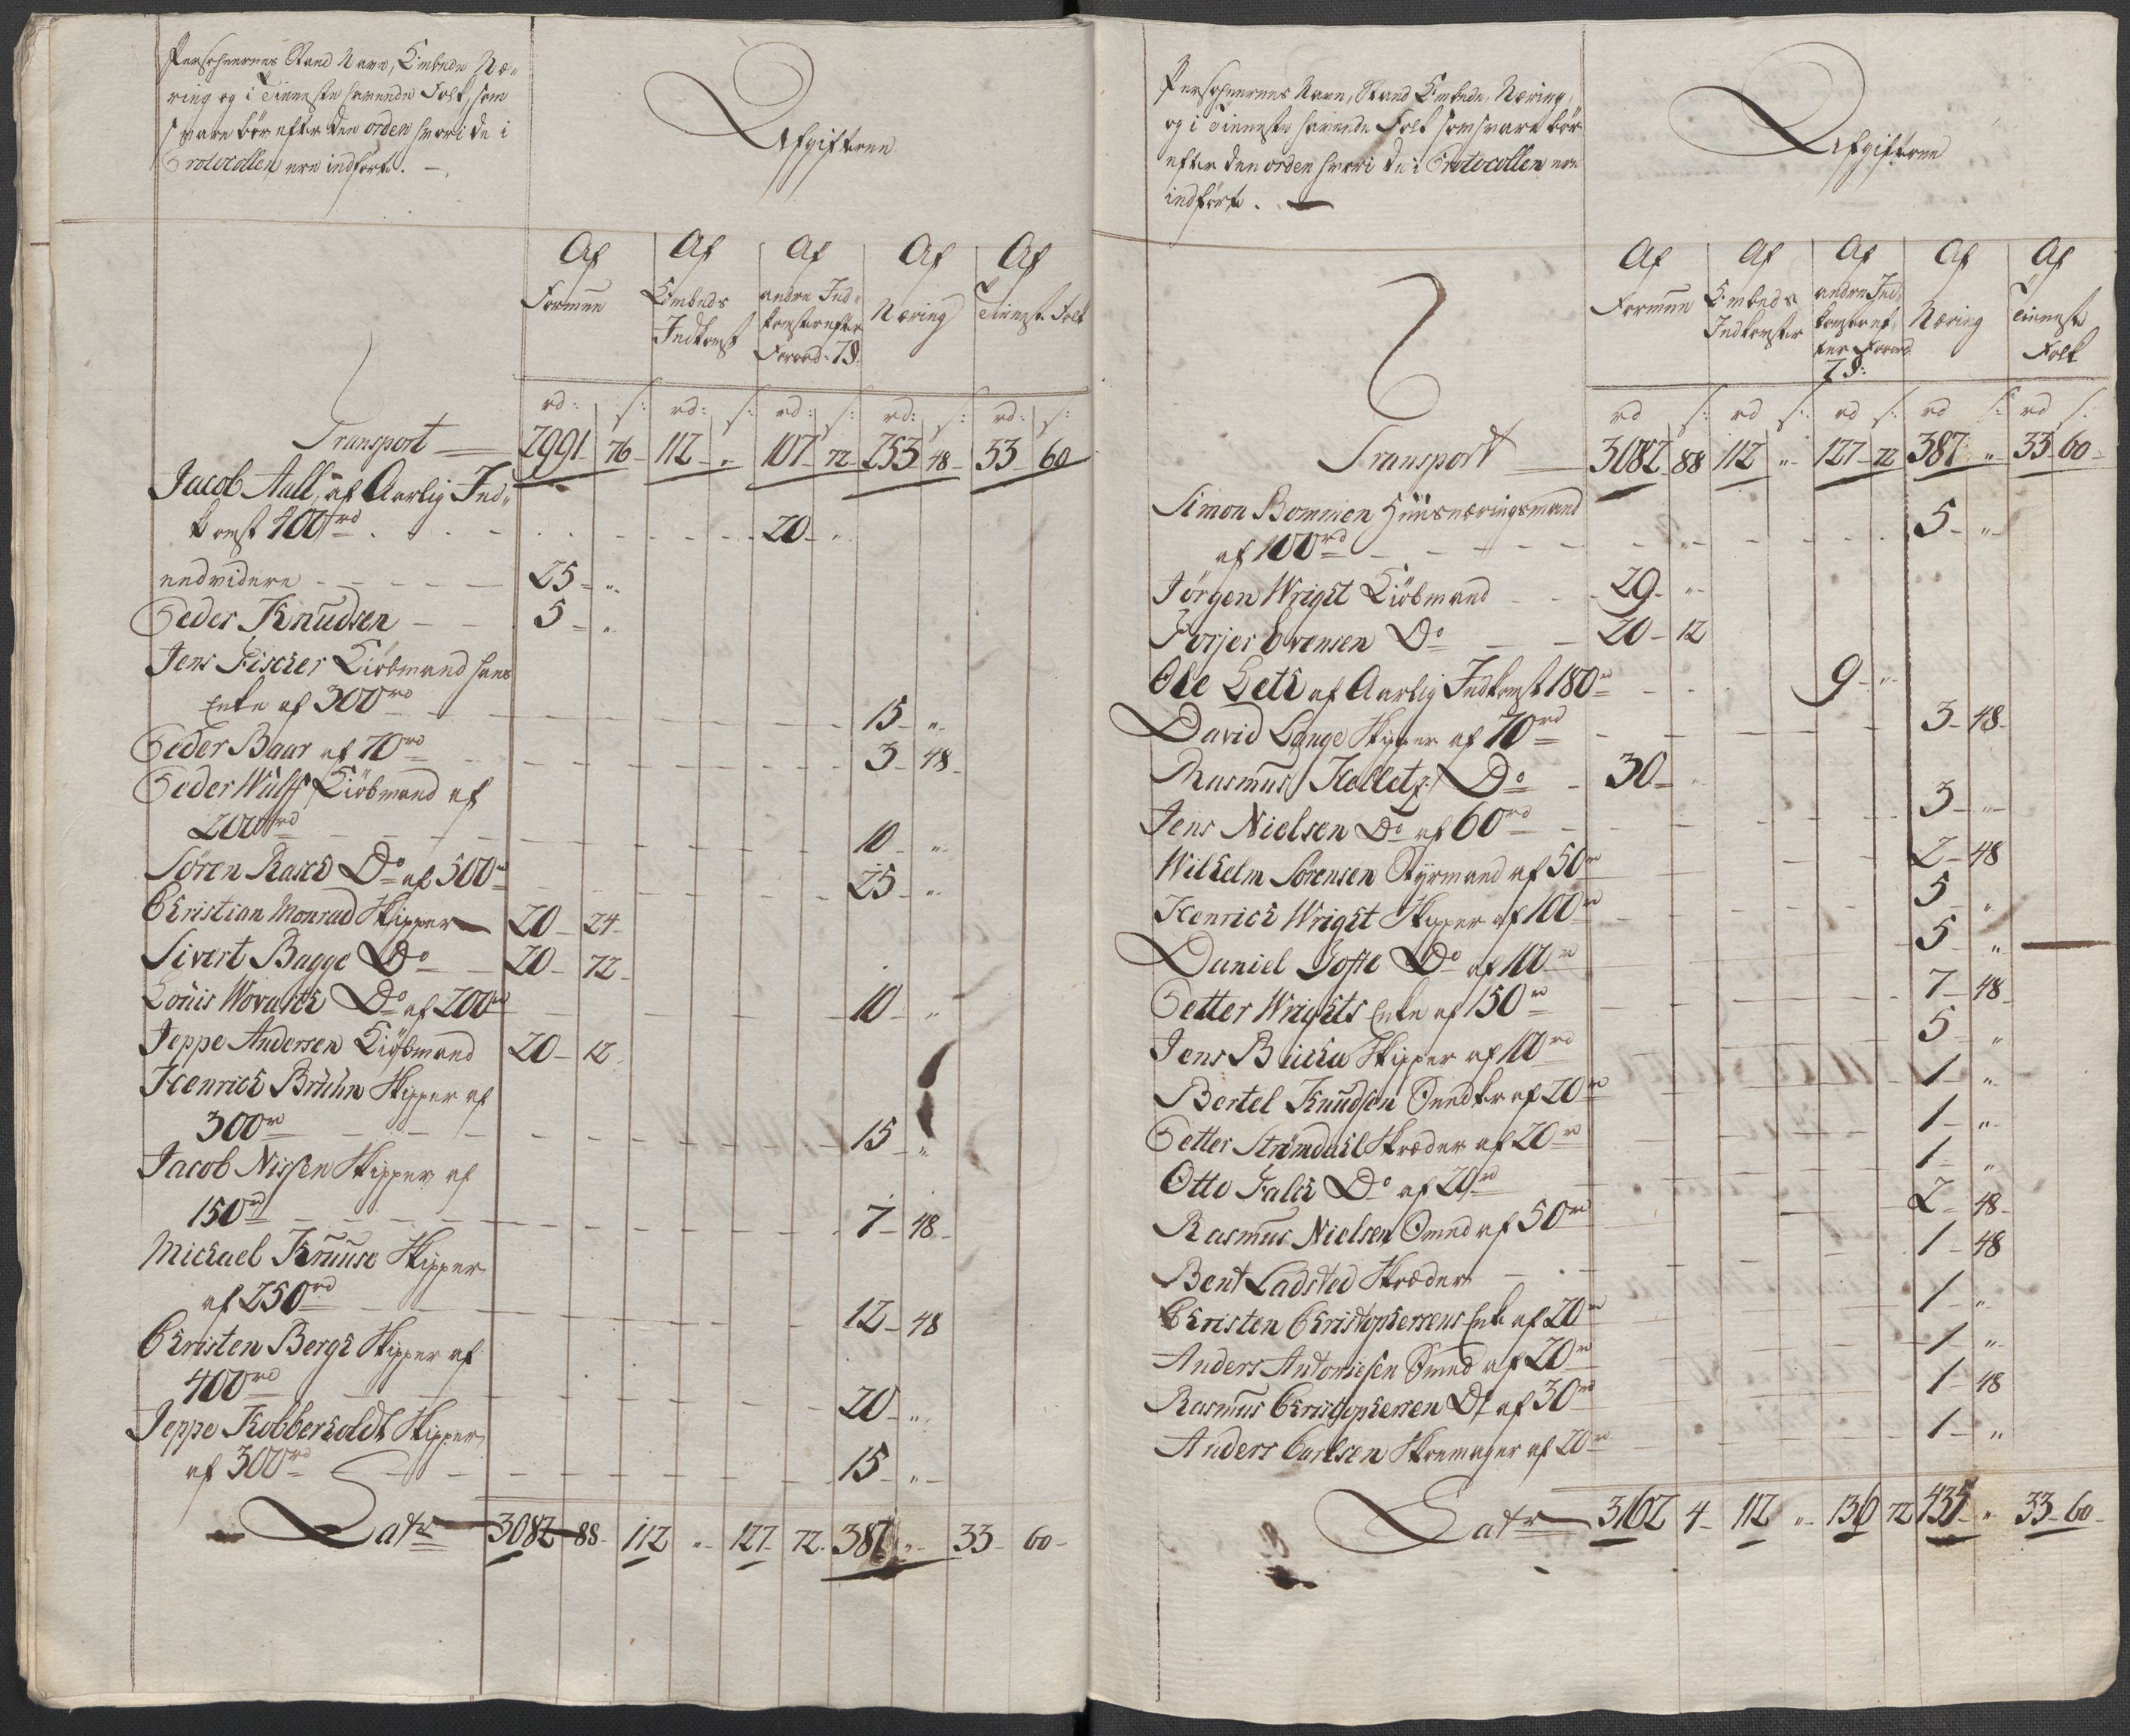 Persohnernes Stand Navn, Embede Næ-
ring og i Tienneste havende Folk, som
svare bör efter den orden hvori de i
Protocollen ere indförte. —
Afgifterne
Af Formue
Af Embeds Indkomst
Af andre Ind- komster efter Forord: 78.
Af Næring
Af Tienest Folk
rd: s: rd: s: rd: s: rd: s: rd: s:
Transport 2991 76 112 " 107 72 253 48 33 60
Jacob Aall, af Aarlig Ind-
komst 400 rd 20 "
endvidere 25 "
Peder Knudsen 5 "
Jens Fischer Kiöbmand hans
Enke af 300 rd 15 "
Peder Baar af 70 rd 3 48
Peder Wulff Kiöbmand af
200 rd 10 "
Sören Rasch Do af 500 rd 25 "
Christian Monrad Skipper 20 24
Sivert Bagge Do 20 72
Louis Af 200 rd 10 "
Jeppe Andersen Kiöbmand 20 12
Henrich Bruhn Skipper af
300 rd 15 "
Jacob Nissen Skipper af
150 rd 7 48
Michael Kruuse Skipper
af 250 rd 12 48
Christen Bergh Skipper af
400 rd 20 "
Jeppe Kobberholdt Skipper
af 300 rd 15 "
Latr 3082 88 112 " 127 72 387 " 33 60
Persohnernes Navn, Stand Embede, Næring,
og i Tienneste havende Folk som svare bör
efter den orden hvori de i Protocollen ere
indförte. —
Afgifterne
Af Formue
Af Embeds Indkomster
Af andre Ind- komster ef- ter Forord 78:
Af Næring
Af Tienneste Folk
rd s: rd s: rd s: rd s: rd s:
Transport 3082 88 112 " 127 72 387 " 33 60
Simon Bommen Huusnæringsmand
af 100 rd 5 "
Jörgen Wright Kiöbmand 29 "
Torjer Evensen Do 20 12
Ole Leth af Aarlig Indkomst 180 rd 9 "
David Lange Skipper af 70 rd 3 48
Rasmus Kelletz Do 30 "
Jens Nielsen Do af 60 rd 3 "
Wilhelm Sörensen Styrmand af 50 rd 2 48
Henrich Wright Skipper af 100 rd 5 "
Daniel Do af 100 rd 5 "
Petter Wrights Enke af 150 rd 7 48
Jens Skipper af 100 rd 5 "
Bertel Knudsen af 20 rd 1 "
Petter Strömdahl Skræder af 20 rd 1 "
Otto Falch Do af 20 rd 1 "
Rasmus Nielsen Smed af 50 rd 2 48
Bent Ladsted Skræder 1 48
Christen Christophersens Enke af 20 rd 1 "
Anders Antoniesen Smed af 20 rd 1 "
Rasmus Christophersen Do af 30 rd 1 48
Anders Carlsen Skomager af 20 rd 1 "
Latr 3162 4 112 " 136 72 435 " 33 60